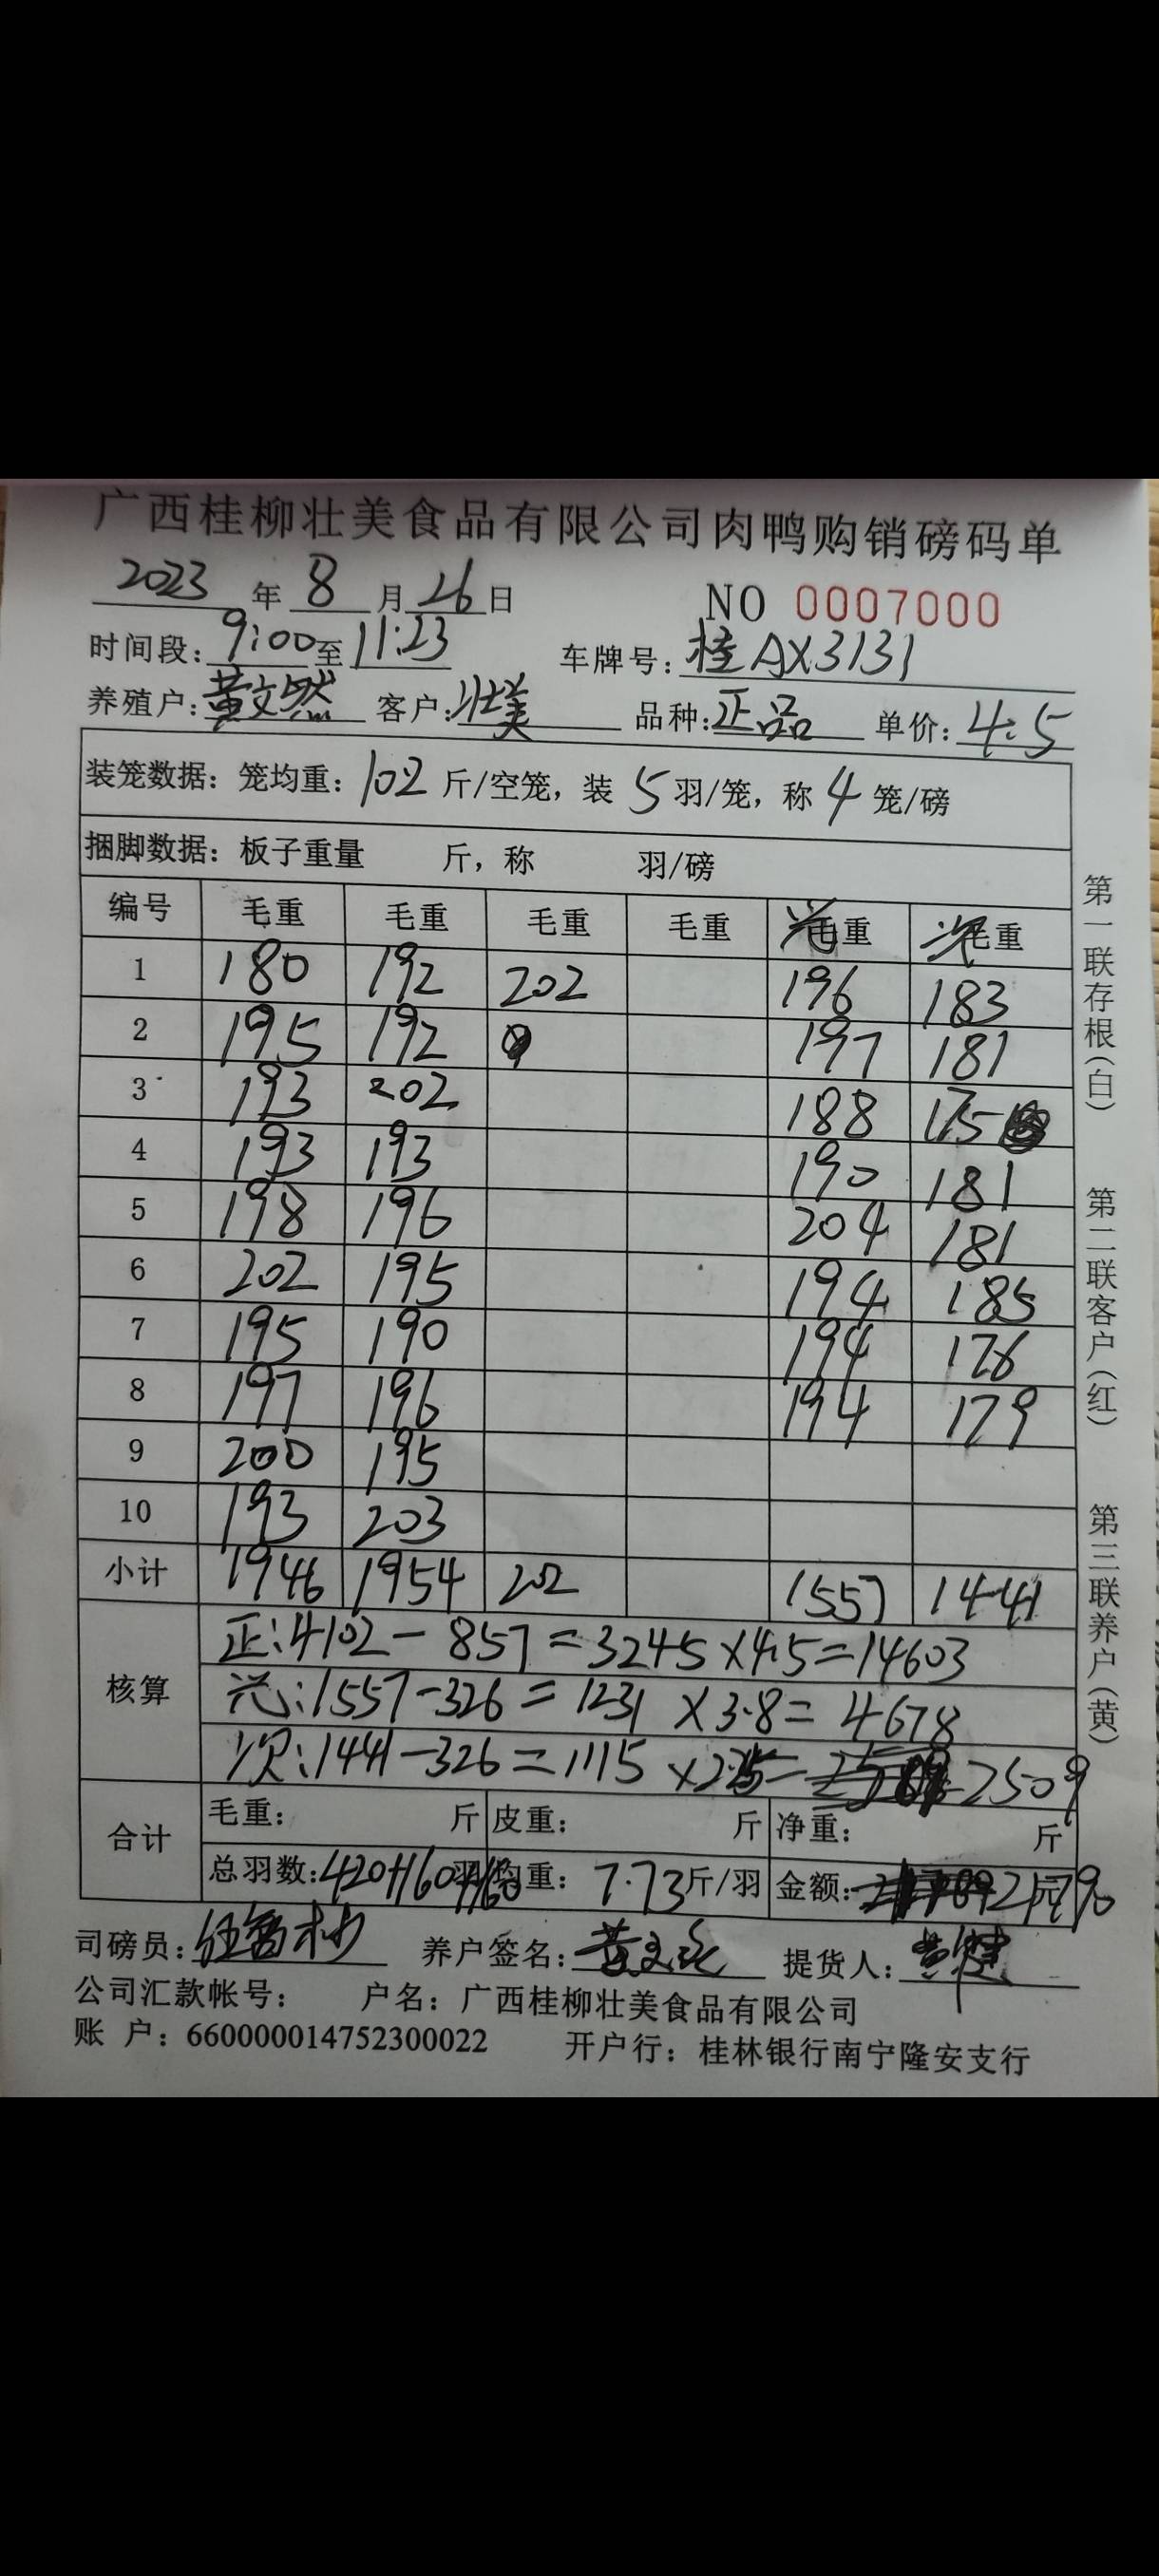 广西桂柳壮美食品有限公司肉鸭购销磅码单
2023 年 8 月 26 日 NO 0007000
时间段: 9:00 至 11:23 车牌号: 桂AX3131
养殖户: 黄文然 客户: 壮美 品种: 正品 单价: 4.5
装笼数据: 笼均重: 102 斤/空笼, 装 5 羽/笼, 称 4 笼/磅
捆脚数据: 板子重量 斤, 称 羽/磅
编号 毛重 毛重 毛重 毛重 毛重 次毛重
1 180 192 202 196 183
2 195 192 197 181
3 193 202 188 175
4 193 193 190 181
5 198 196 204 181
6 202 195 194 185
7 195 190 194 176
8 197 196 194 179
9 200 195
10 193 203
小计 1946 1954 202 1557 1441
核算
正:4102-857=3245×4.5=14603
:1557-326=1231×3.8=4678
次:1441-326=1115×2.25=2509
合计
毛重: 斤 皮重: 斤 净重: 斤
总羽数: 420+160+160 羽 均重: 7.73 斤/羽 金额: 21790 元
司磅员: 养户签名: 黄文 提货人: 黄健
公司汇款帐号: 户名: 广西桂柳壮美食品有限公司
账 户: 660000014752300022 开户行: 桂林银行南宁隆安支行
第一联存根(白)
第二联客户(红)
第三联养户(黄)